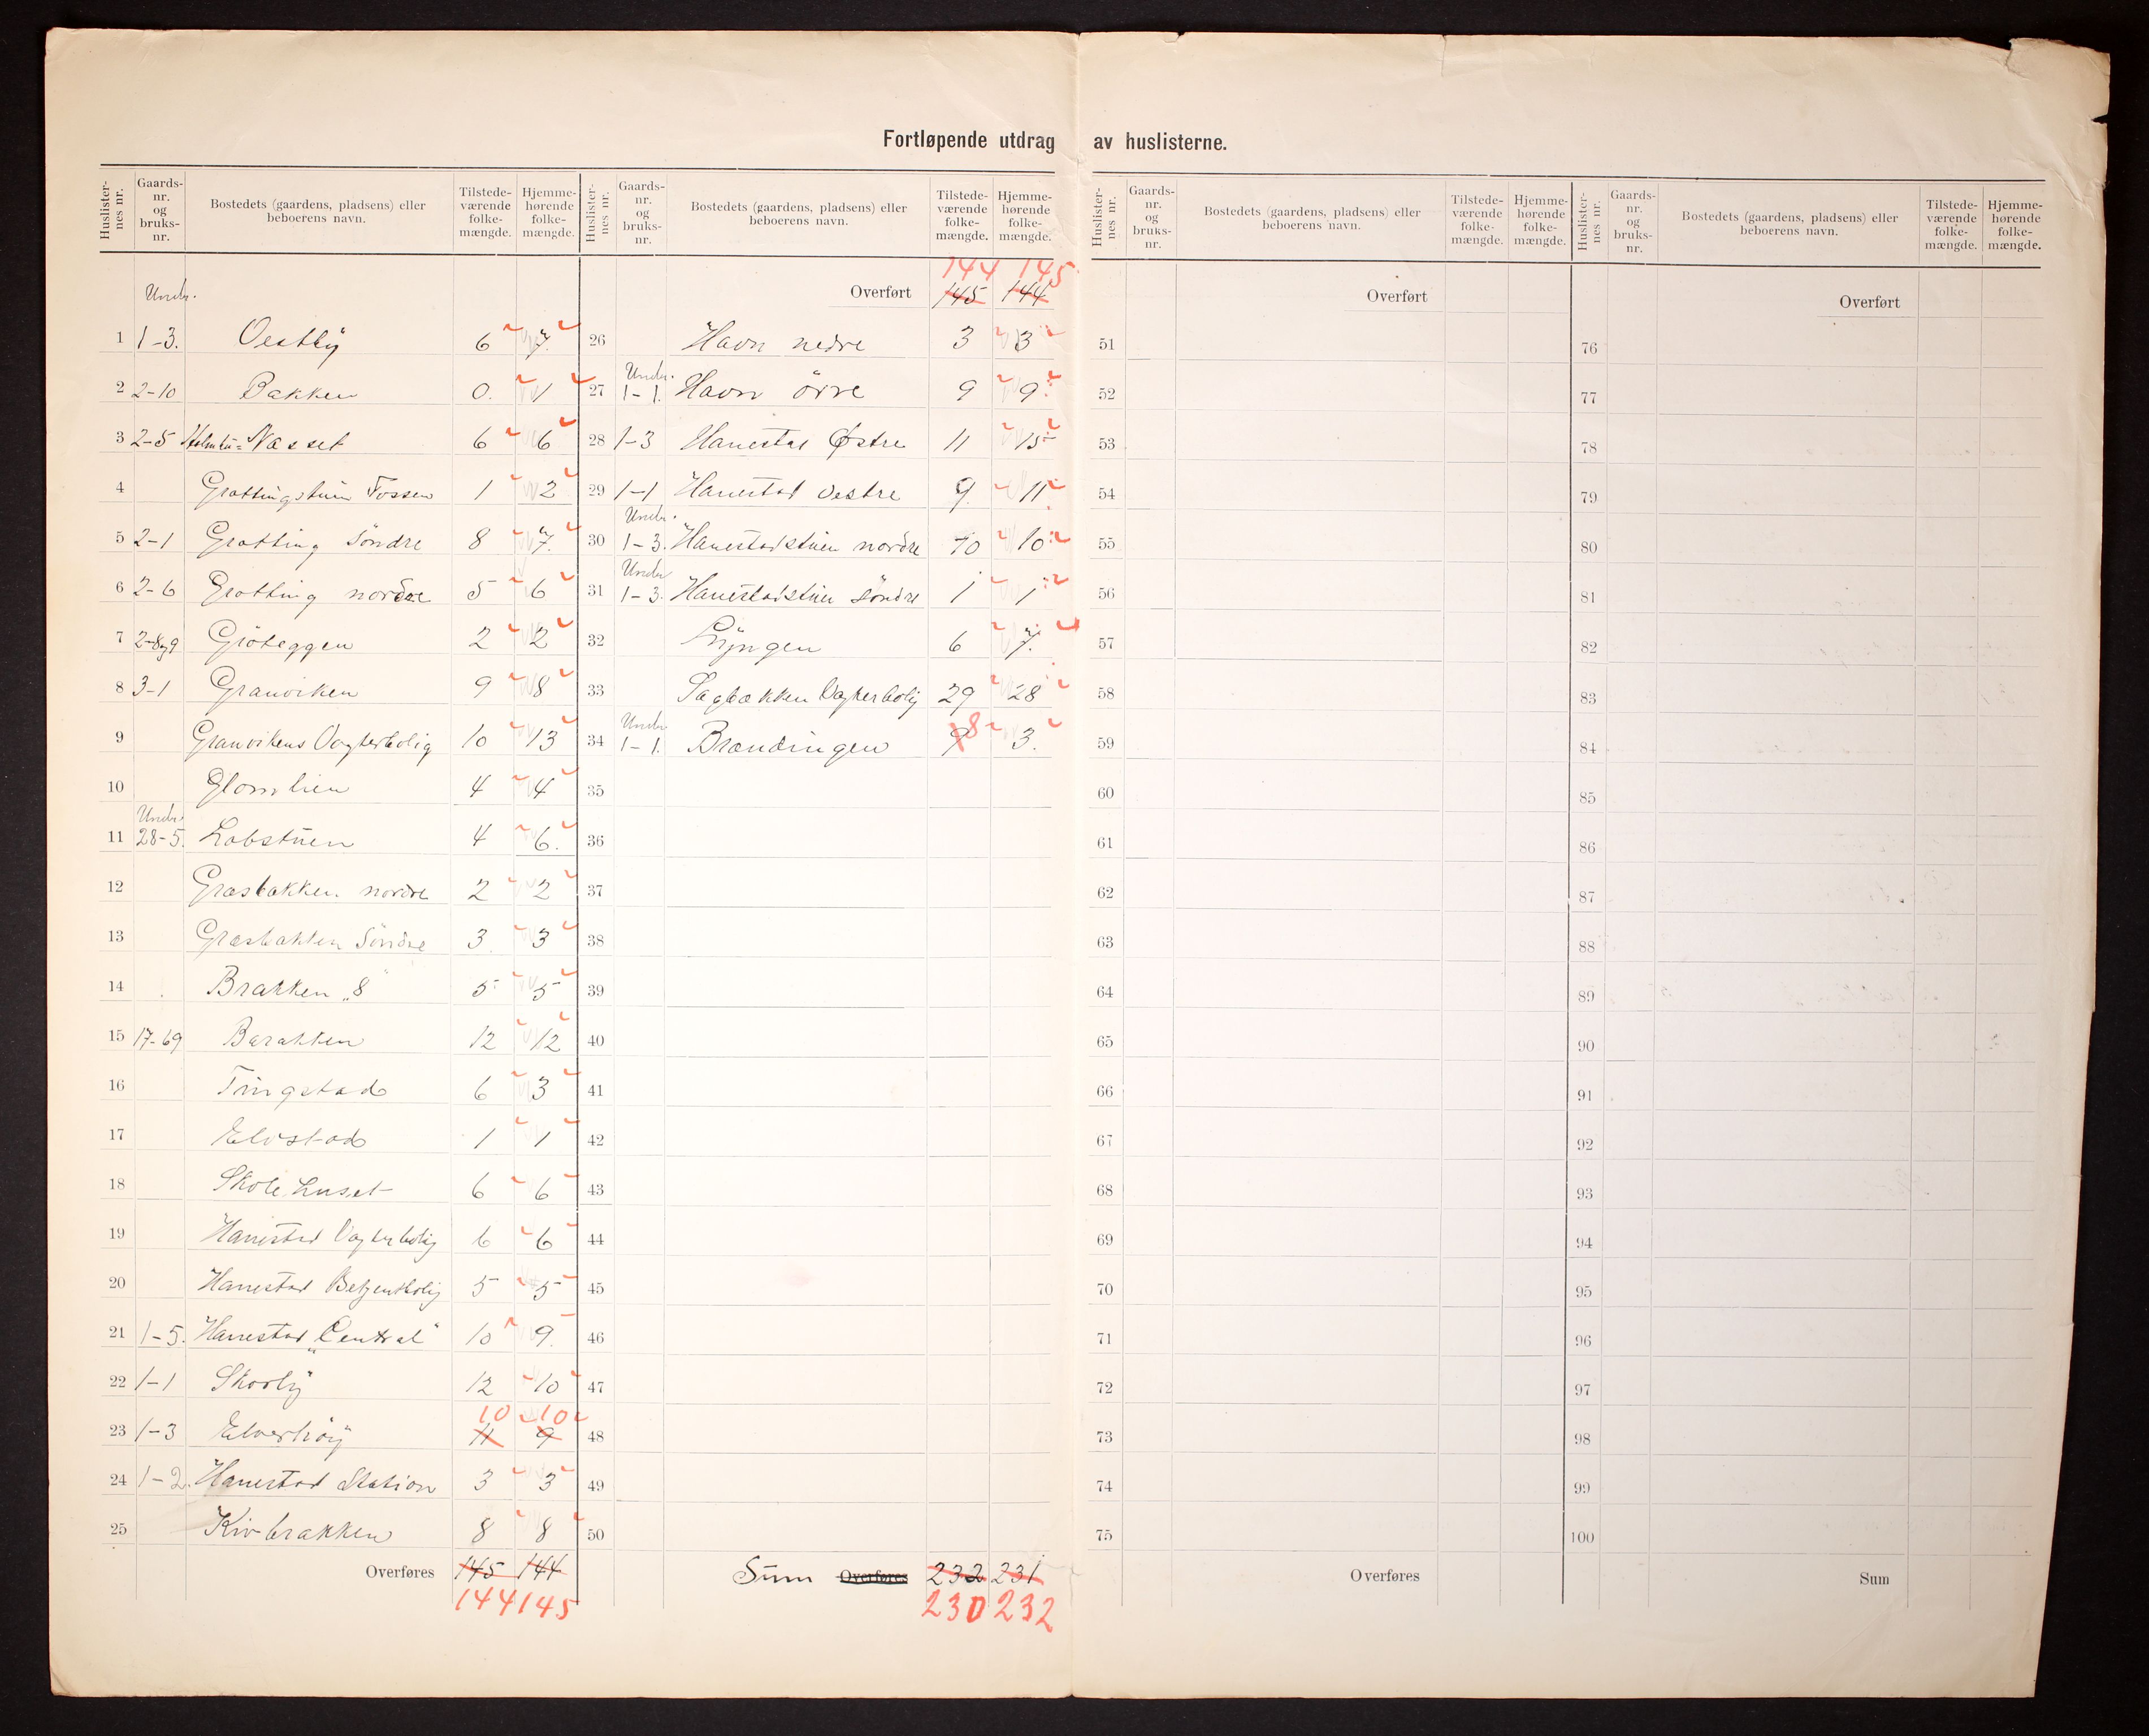 Fortløpende utdrag av huslisterne.
Huslister-nes nr. Gaards-nr. og bruks-nr. Bostedets (gaardens, pladsens) eller beboerens navn. Tilstede-værende folke-mængde. Hjemme-hørende folke-mængde.
Undr.
1 1-3. Oestby 6 7.
2 2-10 Bakken 0. 1
3 2-5 Næsset 6 6
4 Grøttingstuen Fossen 1 2
5 2-1 Grøtting Söndre 8 7.
6 2-6 Grøtting nordre 5 6
7 2-8og9 Gröteggen 2 2
8 3-1 Granviken 9 8
9 Granvikens Vogterbolig 10 13
10 Glomlien 4 4
Under
11 28-5. Lobstuen 4 6.
12 Græsbakken nordre 2 2
13 Græsbakken Söndre 3. 3
14 Brakken „8" 5 5
15 17-69 Barakken 12 12
16 Tingstad 6 3
17 Elvstad 1 1
18 Skolehuset 6 6
19 Hanestad Vogterbolig 6 6
20 Hanestad Betjentbolig 5 5
21 1-5. Hanestad „Central" 10 9.
22 1-1 Skovly 12 10
10 10
23 1-3 Elverhöy 11 9
24 1-2. Hanestad Station 3 3
25 Kivbrakken 8 8
Overføres 145 144
144 145
Huslister-nes nr. Gaards-nr. og bruks-nr. Bostedets (gaardens, pladsens) eller beboerens navn. Tilstede-værende folke-mængde. Hjemme-hørende folke-mængde.
144 145
Overført 145 144
26 Havn nedre 3 3
Under.
27 1-1. Havn övre 9 9
28 1-3 Hanestad Østre 11 15
29 1-1 Hanestad vestre 9. 11
Undr.
30 1-3. Hanestadstuen nordre 10 10
Under
31 1-3. Hanestadstuen söndre 1 1
32 Lyngen 6 7.
33 Sagbækken Vogterbolig 29 28
Under
34 1-1. Brændingen 9 8 3.
35
36
37
38
39
40
41
42
43
44
45
46
47
48
49
50
Sum Overføres 232 231
230 232
Huslister-nes nr. Gaards-nr. og bruks-nr. Bostedets (gaardens, pladsens) eller beboerens navn. Tilstede-værende folke-mængde. Hjemme-hørende folke-mængde.
Overført
51
52
53
54
55
56
57
58
59
60
61
62
63
64
65
66
67
68
69
70
71
72
73
74
75
Overføres
Huslister-nes nr. Gaards-nr. og bruks-nr. Bostedets (gaardens, pladsens) eller beboerens navn. Tilstede-værende folke-mængde. Hjemme-hørende folke-mængde.
Overført
76
77
78
79
80
81
82
83
84
85
86
87
88
89
90
91
92
93
94
95
96
97
98
99
100
Sum